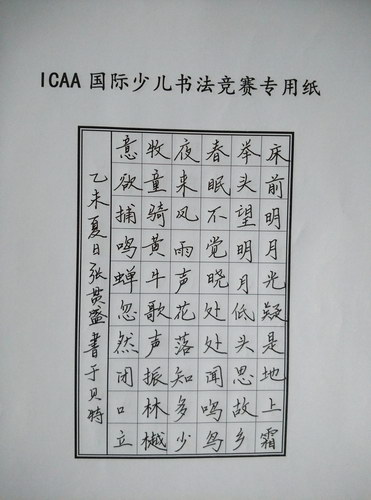 ICAA 国际少儿书法竞赛专用纸
床前明月光疑是地上霜
举头望明月低头思故乡
春眠不觉晓处处闻鸣鸟
夜来风雨声花落知多少
牧童骑黄牛歌声振林樾
意欲捕鸣蝉忽然闭口立
乙未夏日张贯盛書于贝特